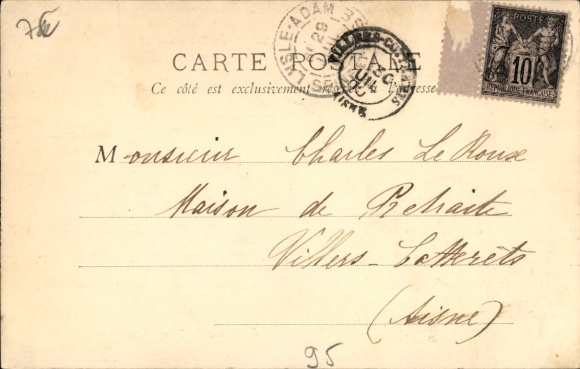 L'ISLE-ADAM
29
VILLERS-COTTERETS
30
JUIL
AISNE
POSTE
10
REPUBLIQUE FRANÇAISE
CARTE POSTALE
Ce côté est exclusivement réservé à l'adresse
Monsieur Charles Le Roux
Maison de Retraite
Villers-Cotterets
(Aisne)
95